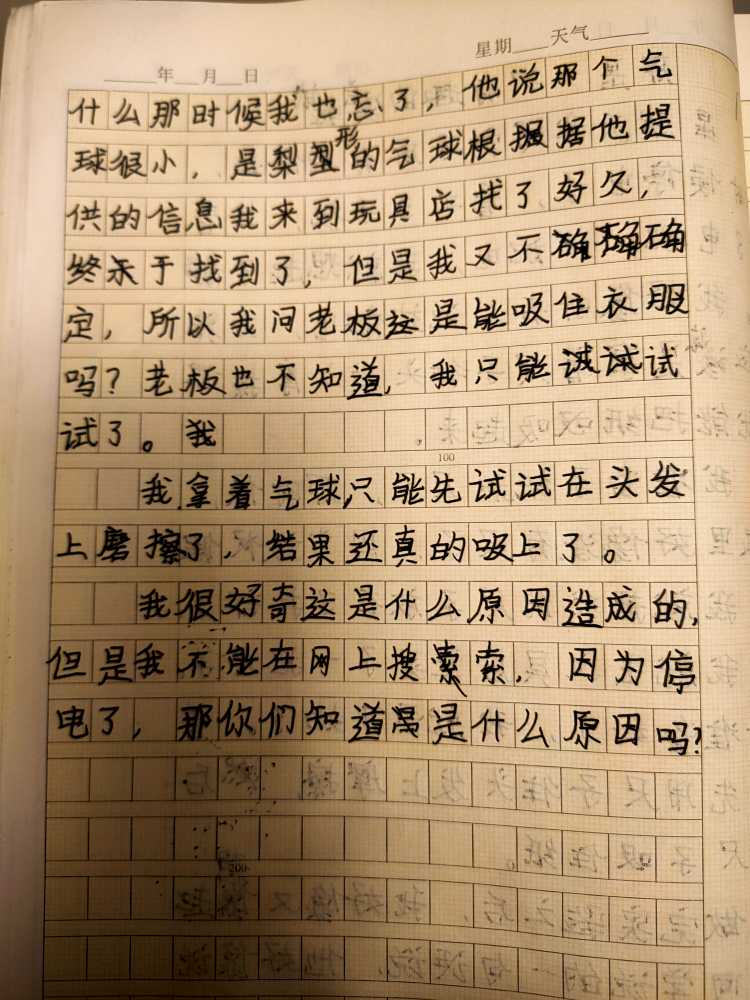 年 月 日 星期 天气
什么那时候我也忘了，他说那个气
球很小，是梨型形的气球根据他提
供的信息我来到玩具店找了好久，
终于找到了，但是我又不确
定，所以我问老板这是能吸住衣服
吗？老板也不知道，我只能试试
试了。我
100
我拿着气球，只能先试试在头发
上磨擦了，结果还真的吸上了。
我很好奇这是什么原因造成的，
但是我不能在网上搜索，因为停
电了，那你们知道是什么原因吗？
200